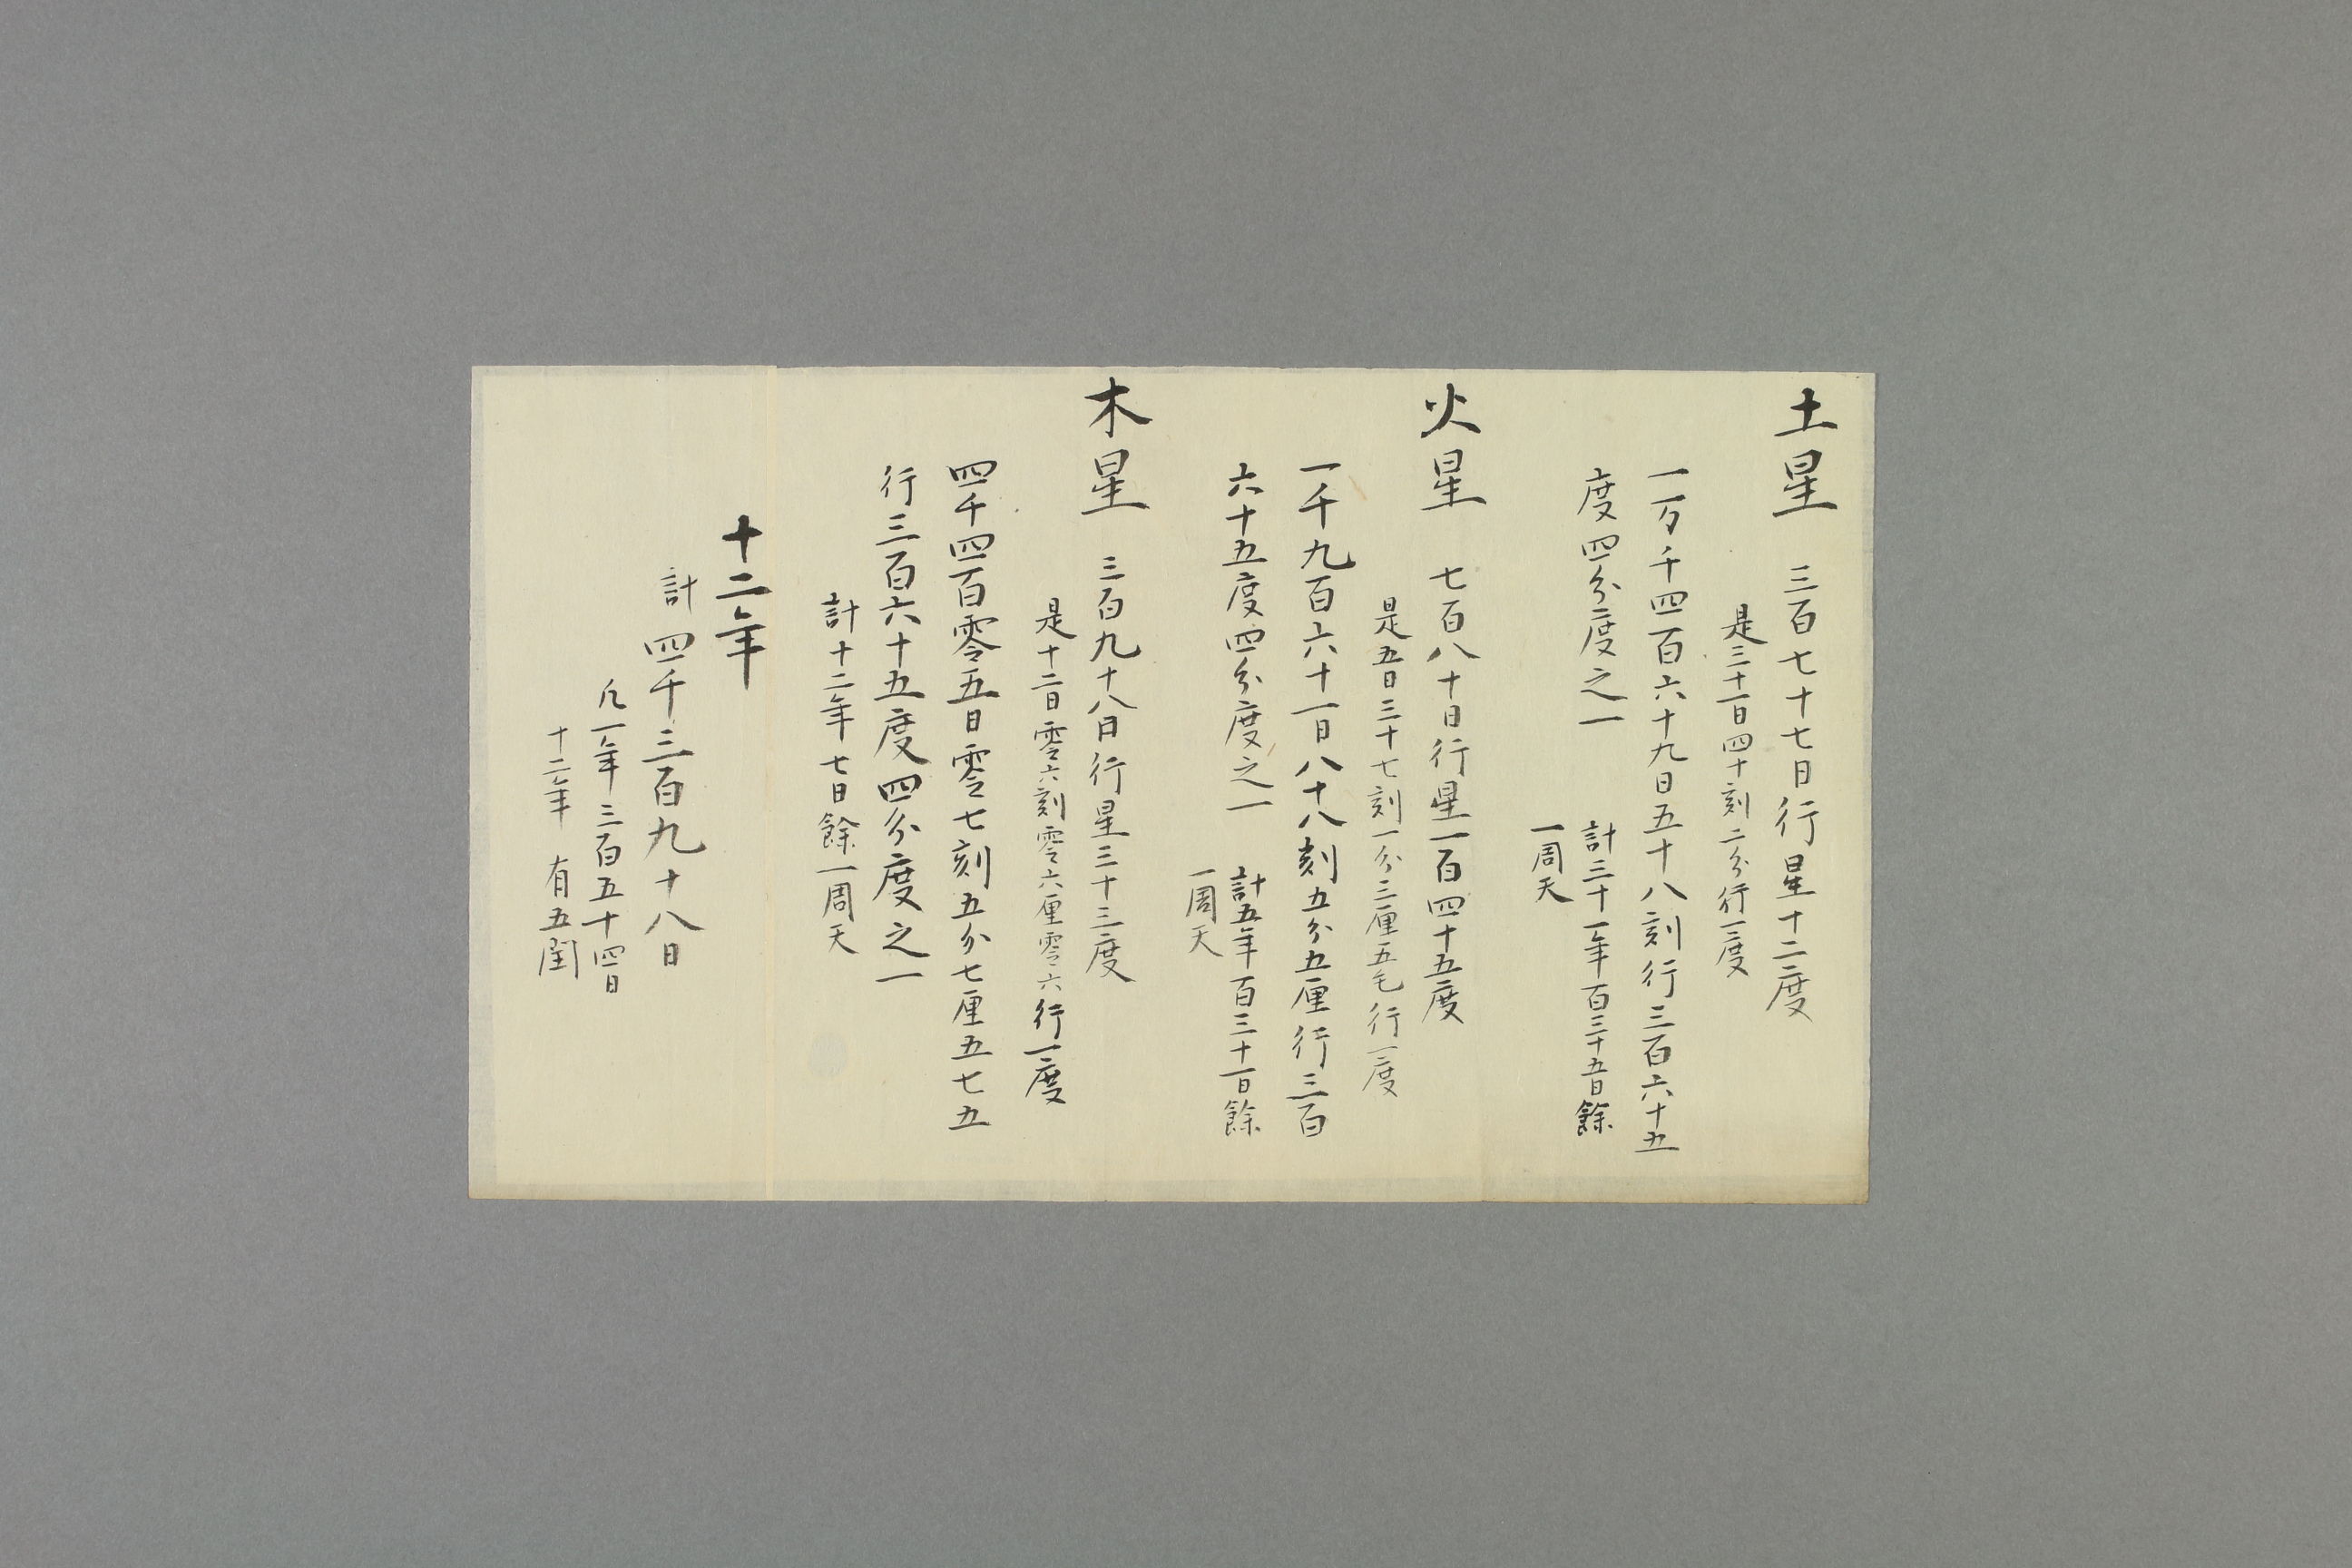 土星 三百七十七日行星十二度
是三十一日四十刻二分行一度
一万千四百六十九日五十八刻行三百六十五
度四分度之一
計三十一年百三十五日餘
一周天
火星 七百八十日行星一百四十五度
是五日三十七刻一分三厘五毛行一度
一千九百六十一日八十八刻五分五厘行三百
六十五度四分度之一
計五年百三十一日餘
一周天
木星 三百九十八日行星三十三度
是十二日零六刻零六厘零六行一度
四千四百零五日零七刻五分七厘五七五
行三百六十五度四分度之一
計十二年七日餘一周天
十二年
計四千三百九十八日
凡一年三百五十四日
十二年 有五閏